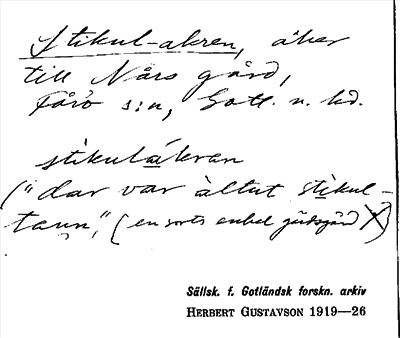 Stikul-akren, åker
till Nårs gård,
Fårö s:n, Gotl. n. hd.
stikulåkran
("dar var altut stikul-
taun", (en sorts enkel gärdsgård)
Sällsk. f. Gotländsk forskn. arkiv
HERBERT GUSTAVSON 1919—26